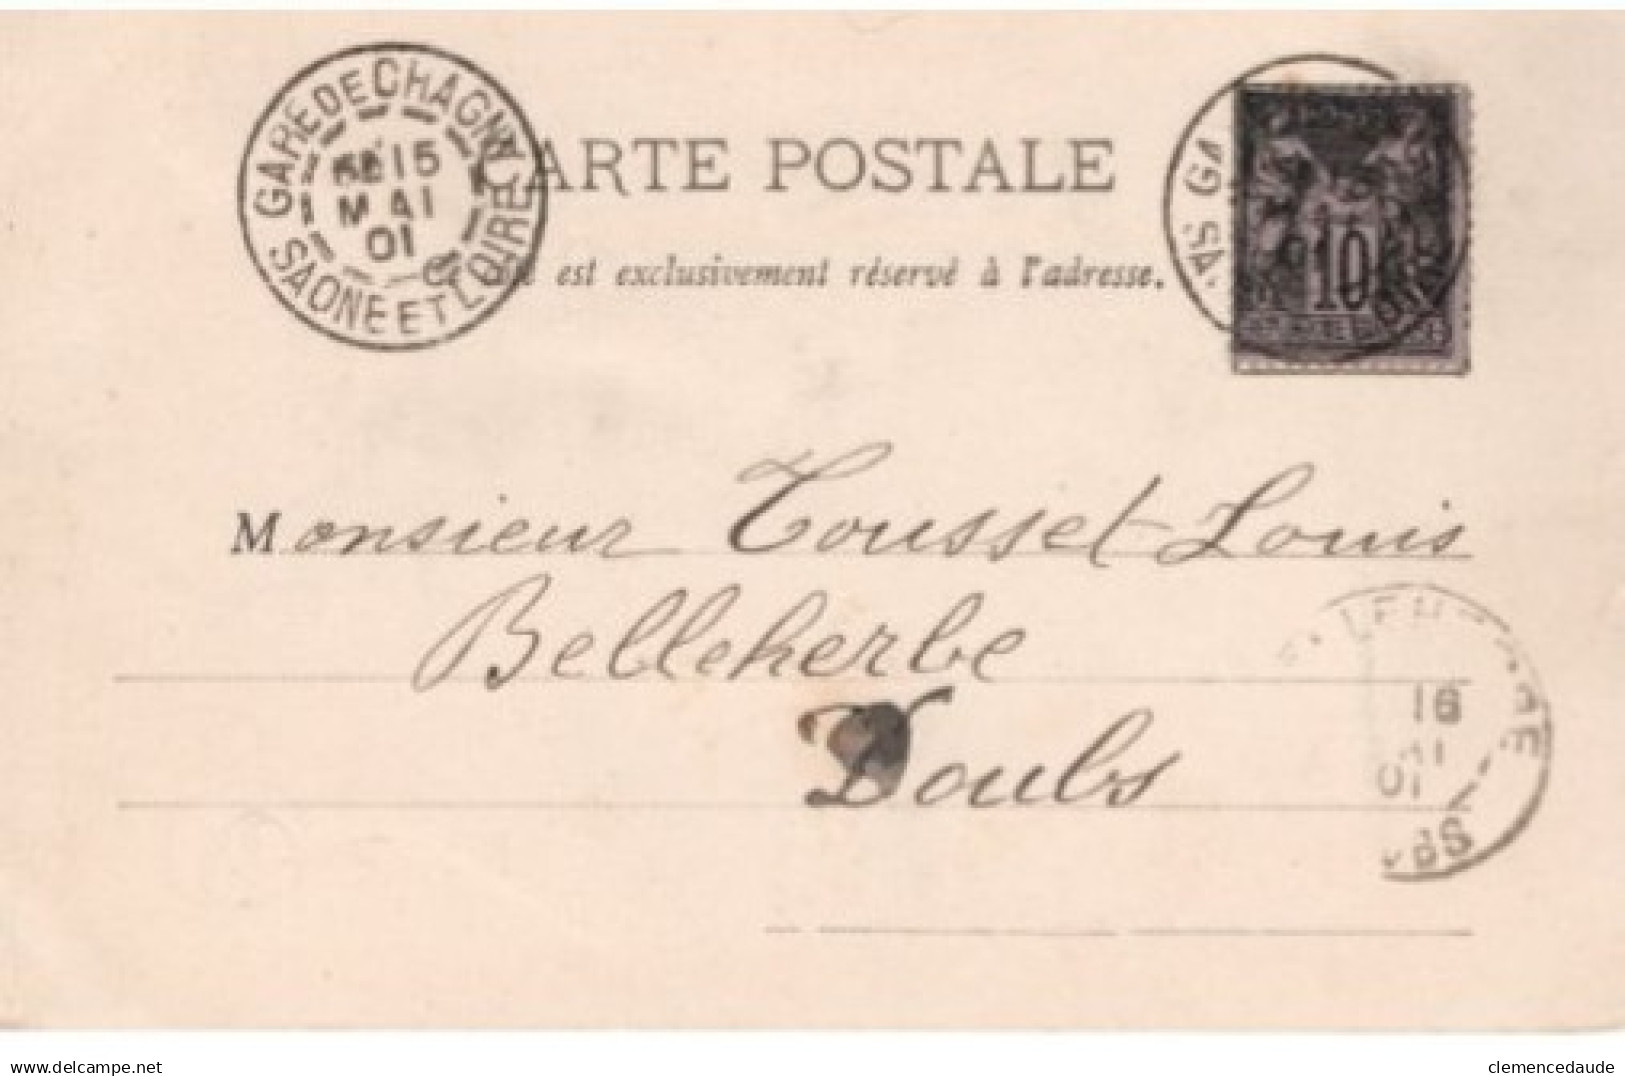 GARE DE CHAGNY
15
MAI
01
SAONE ET LOIRE
CARTE POSTALE
est exclusivement réservé à l'adresse.
10
Monsieur Tousset Louis
Belleherbe
Doubs
16
01
delcampe.net
clemencedaude